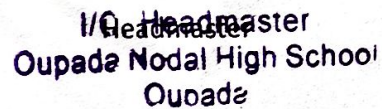 I/C Headmaster
Headmaster
Oupada Nodal High School
Oupada